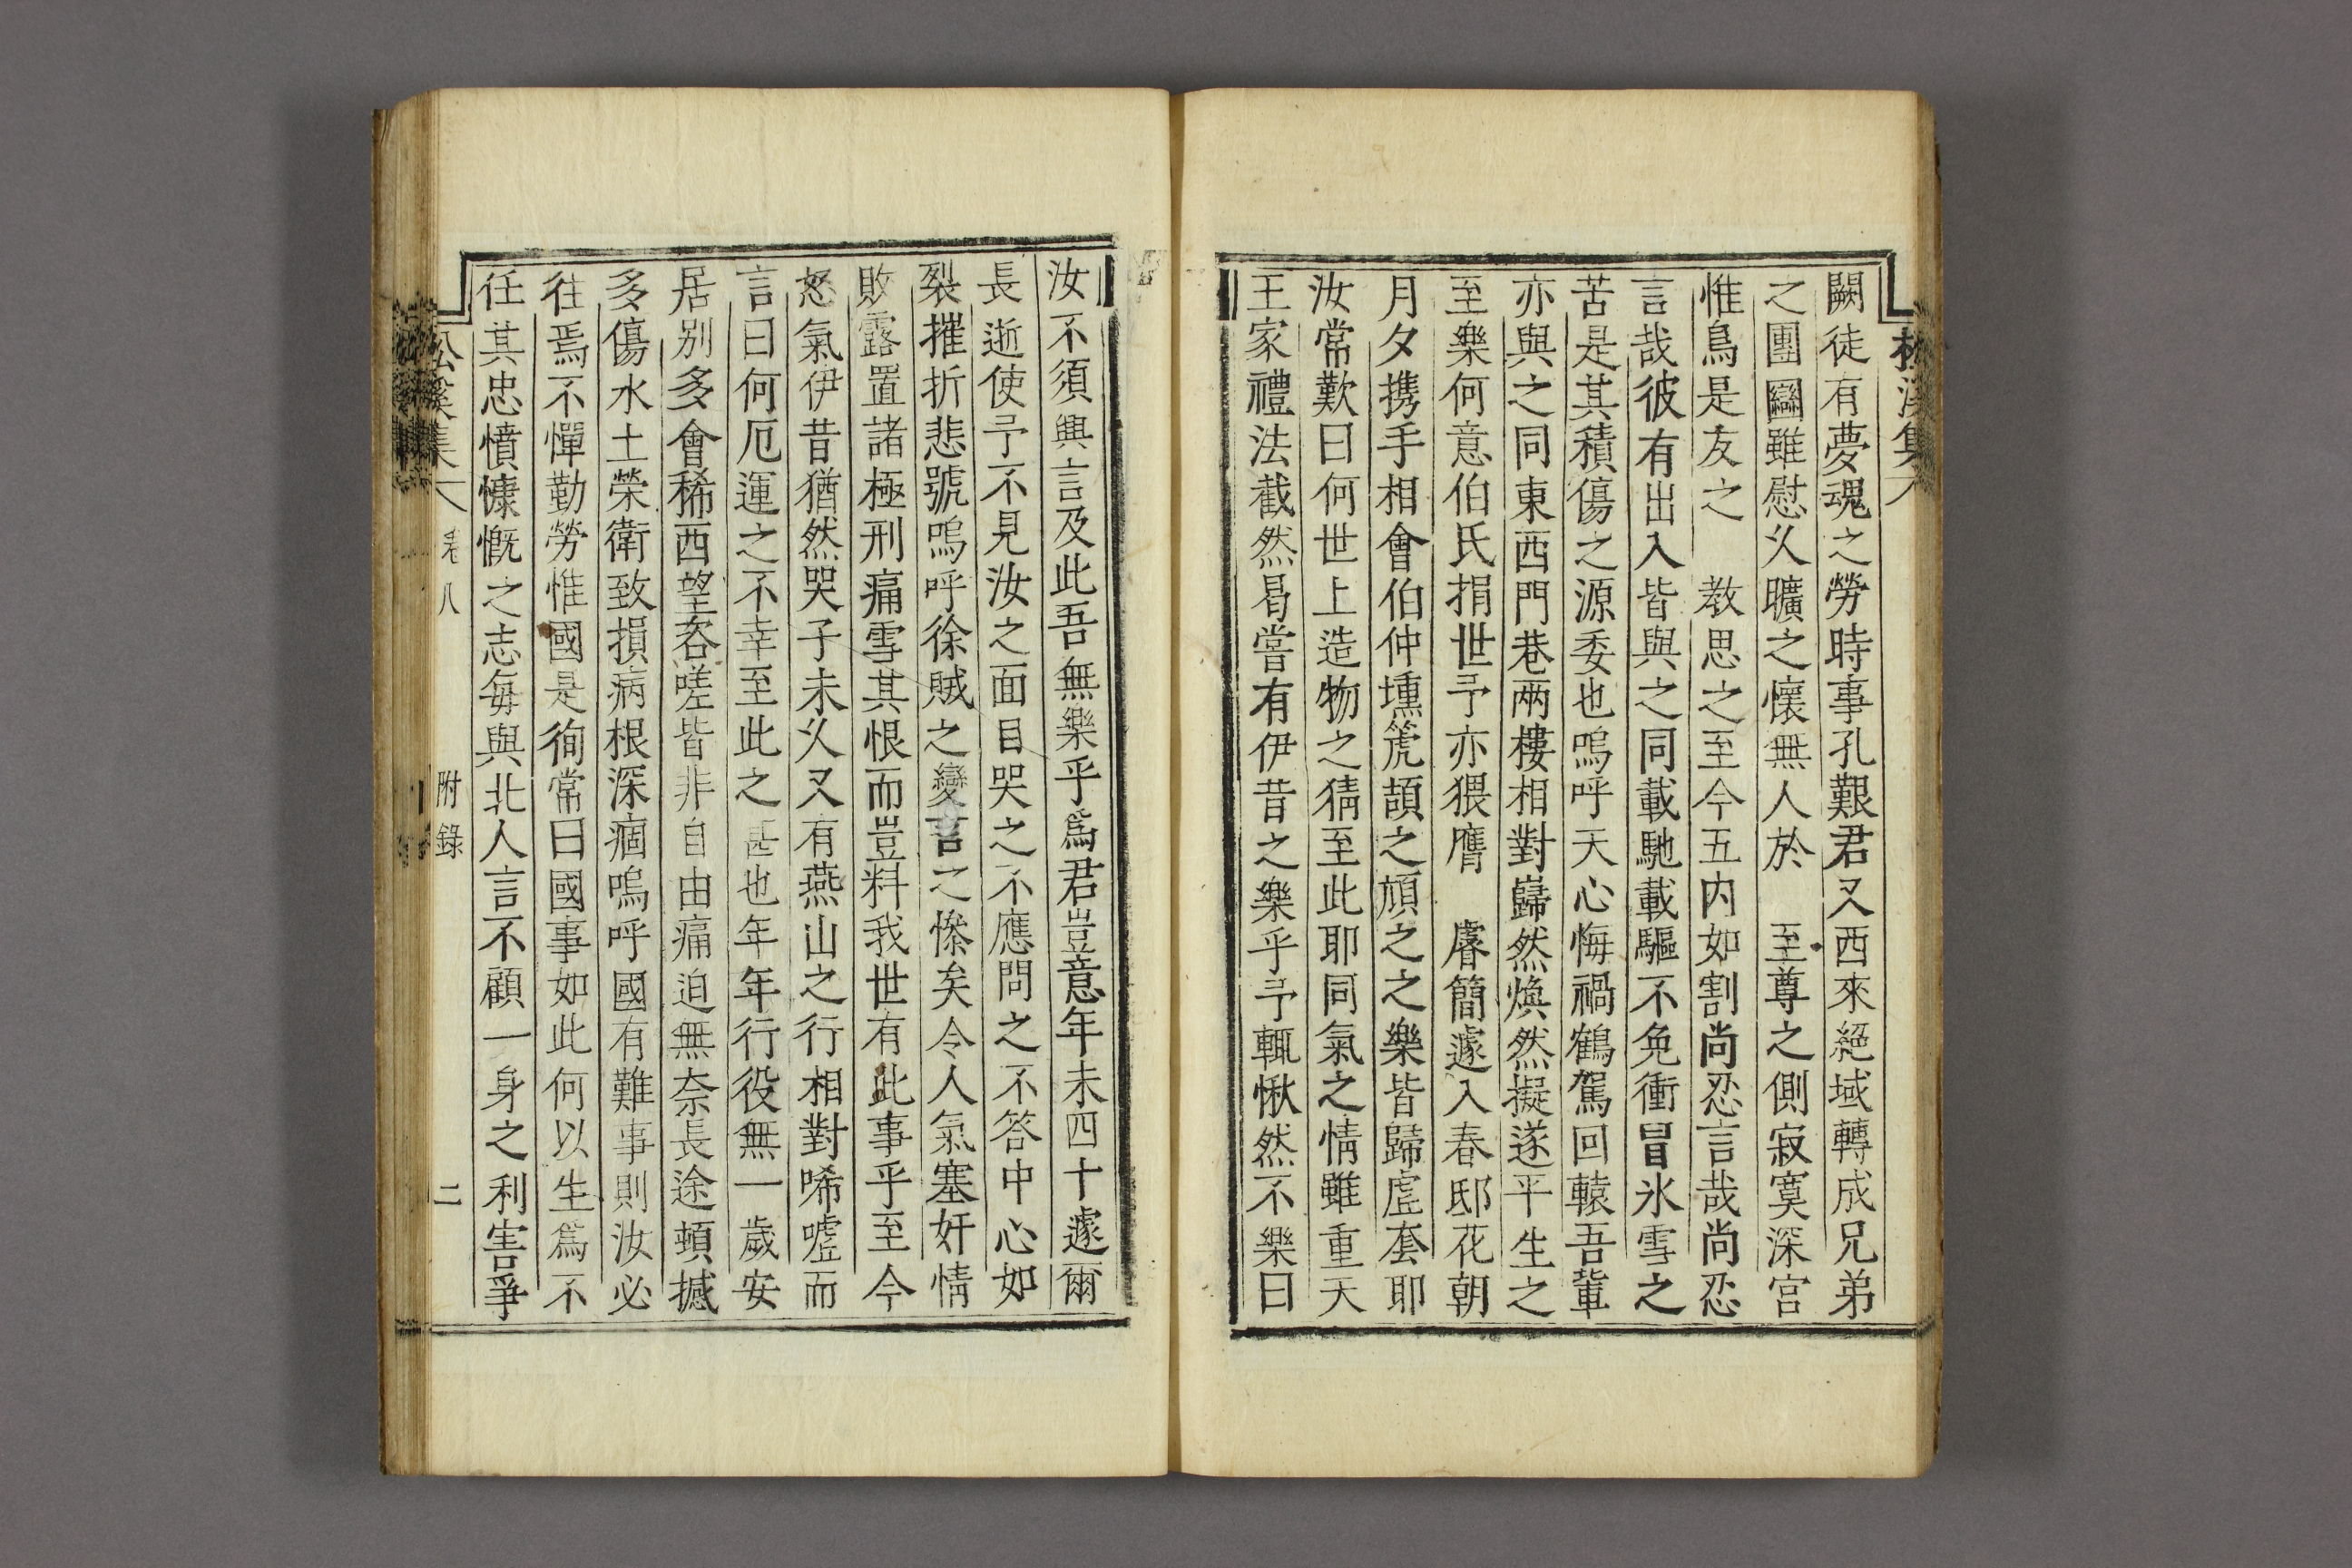 松溪集
闕徒有夢魂之勞時事孔艱君又西來絕域轉成兄弟
之團圞雖慰久曠之懷無人於　至尊之側寂寞深宮
惟鳥是友之　教思之至今五內如割尚忍言哉尚忍
言哉彼有出入皆與之同載馳載驅不免衝冒氷雪之
苦是其積傷之源委也嗚呼天心悔禍鶴駕回轅吾輩
亦與之同東西門巷兩樓相對巋然煥然擬遂平生之
至樂何意伯氏捐世予亦猥膺　睿簡遽入春邸花朝
月夕携手相會伯仲壎箎頡之頏之之樂皆歸虛套耶
汝常歎曰何世上造物之猜至此耶同氣之情雖重天
王家禮法截然曷嘗有伊昔之樂乎予輒愀然不樂曰
汝不須興言及此吾無樂乎爲君豈意年未四十遽爾
長逝使予不見汝之面目哭之不應問之不答中心如
裂摧折悲號嗚呼徐賊之變言之慘矣令人氣塞奸情
敗露置諸極刑痛雪其恨而豈料我世有此事乎至今
怒氣伊昔猶然哭子未久又有燕山之行相對唏噓而
言曰何厄運之不幸至此之甚也年年行役無一歲安
居別多會稀西望咨嗟皆非自由痛迫無奈長途頓撼
多傷水土榮衛致損病根深痼嗚呼國有難事則汝必
往焉不憚勤勞惟國是徇常曰國事如此何以生爲不
任其忠憤慷慨之志每與北人言不顧一身之利害爭
松溪集　卷八　附錄　二